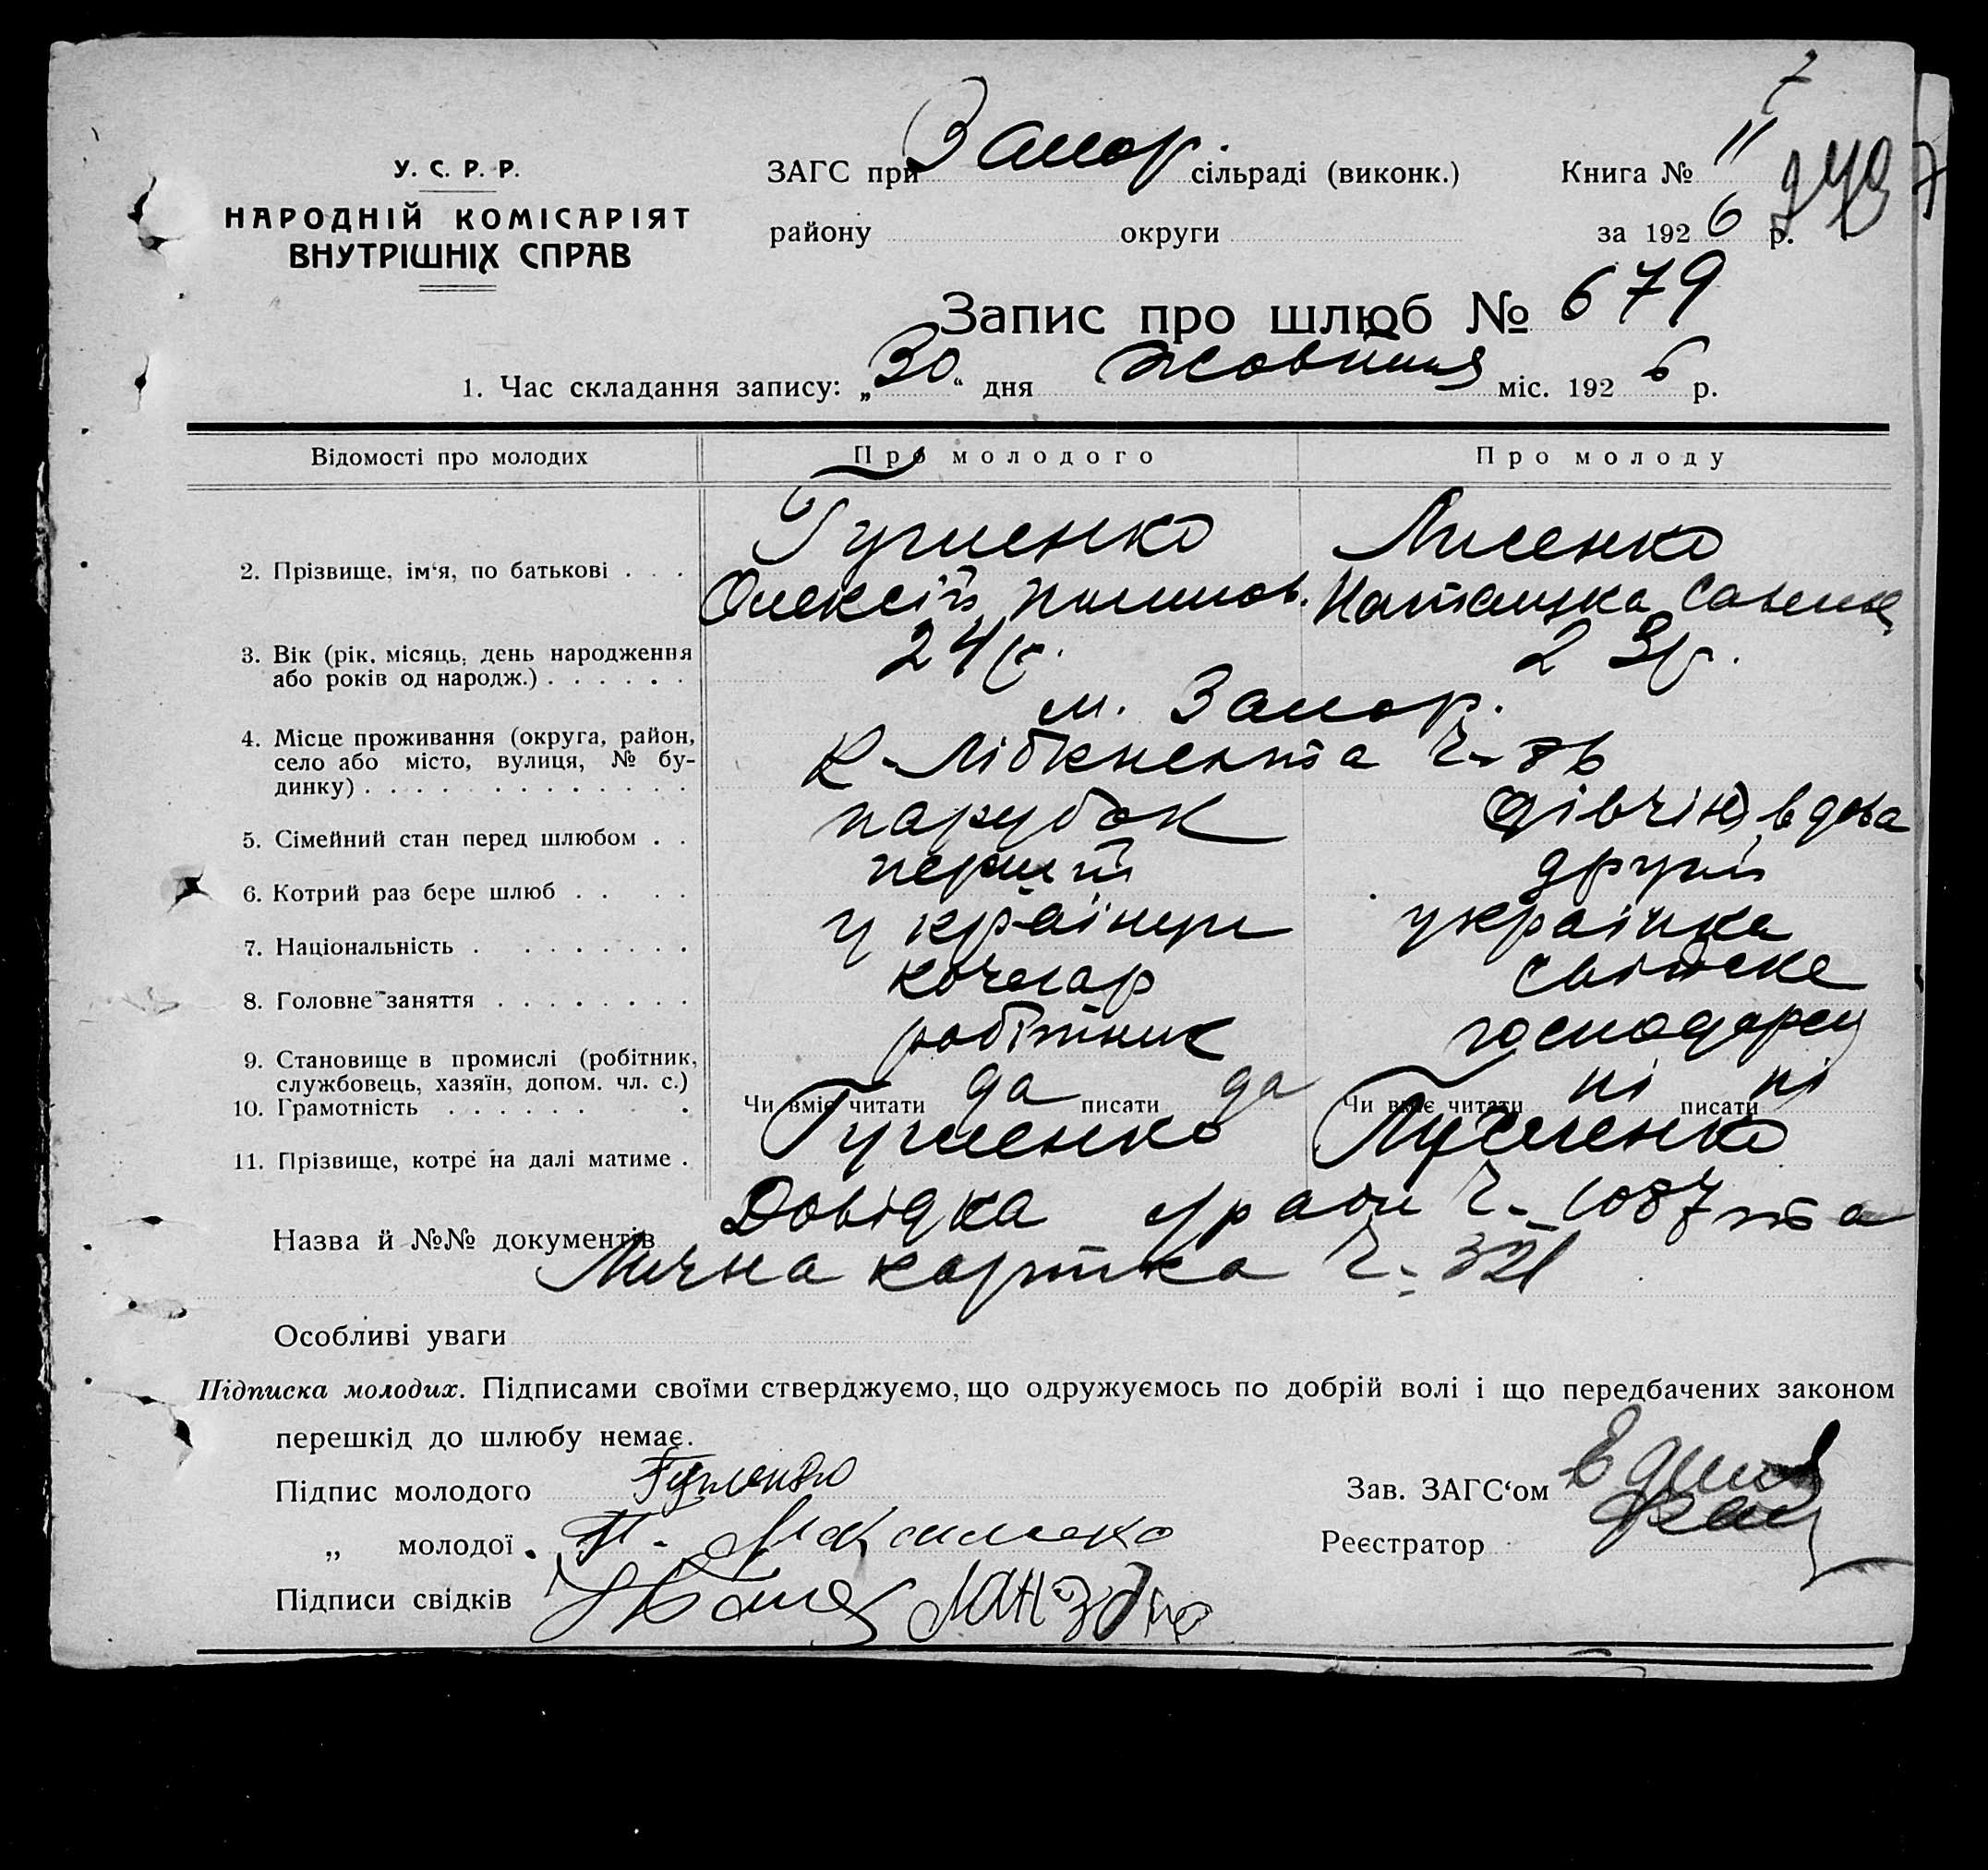 У. С. Р. Р.
НАРОДНІЙ КОМІСАРІЯТ
ВНУТРІШНІХ СПРАВ
ЗАГС при Запор. сільраді (виконк.)
Книга № 11
району округи
за 1926 р.
Запис про шлюб № 679
1. Час складання запису: „30“ дня жовтня міс. 1926 р.
Відомості про молодих
Про молодого
Про молоду
2. Прізвище, ім‘я, по батькові . . .
Гученко
Олексій
Лисенко
3. Вік (рік, місяць, день народження або років од народж.) . . . . . .
24 р.
23 р.
4. Місце проживання (округа, район, село або місто, вулиця, № будинку) . . . . . . . . . . . . . .
м. Запор.
К. Лібкнехта Ч-
5. Сімейний стан перед шлюбом . .
парубок
вдова
6. Котрий раз бере шлюб . . . .
перший
другий
7. Національність . . . . . . . .
українець
українка
8. Головне заняття . . . . . . . .
кочегар
9. Становище в промислі (робітник, службовець, хазяїн, допом. чл. с.)
робітник
10. Грамотність . . . . . . . .
Чи вміє читати да писати да
Чи вміє читати ні писати ні
11. Прізвище, котре на далі матиме .
Назва й №№ документів
Довідка Ч. 1087 та
Лична картка Ч. 321
Особливі уваги
Підписка молодих. Підписами своїми стверджуємо, що одружуємось по добрій волі і що передбачених законом
перешкід до шлюбу немає.
Підпис молодого
Зав. ЗАГС‘ом
„ молодої
Реєстратор
Підписи свідків